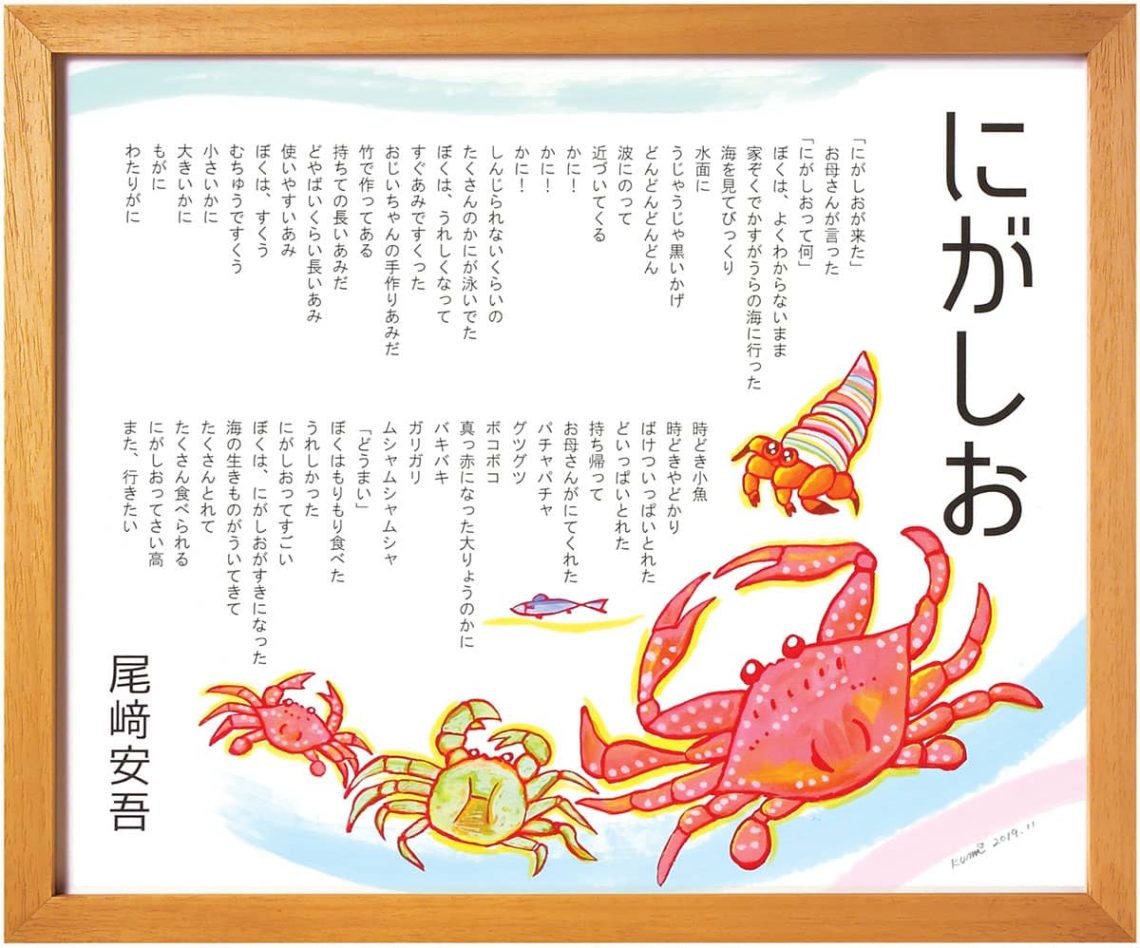 にがしお
「にがしおが来た」
お母さんが言った
「にがしおって何」
ぼくは、よくわからないまま
家ぞくでかすがうらの海に行った
海を見てびっくり
水面に
うじゃうじゃ黒いかげ
どんどんどんどん
波にのって
近づいてくる
かに！
かに！
かに！
しんじられないくらいの
たくさんのかにが泳いでた
ぼくは、うれしくなって
すぐあみですくった
おじいちゃんの手作りあみだ
竹で作ってある
持ちての長いあみだ
どやばいくらい長いあみ
使いやすいあみ
ぼくは、すくう
むちゅうですくう
小さいかに
大きいかに
もがに
わたりがに
時どき小魚
時どきやどかり
ばけついっぱいとれた
どいっぱいとれた
持ち帰って
お母さんがにてくれた
パチャパチャ
グツグツ
ボコボコ
真っ赤になった大りょうのかに
バキバキ
ガリガリ
ムシャムシャムシャ
「どうまい」
ぼくはもりもり食べた
うれしかった
にがしおってすごい
ぼくは、にがしおがすきになった
海の生きものがういてきて
たくさんとれて
たくさん食べられる
にがしおってさい高
また、行きたい
尾﨑安吾
Kumi 2019.11